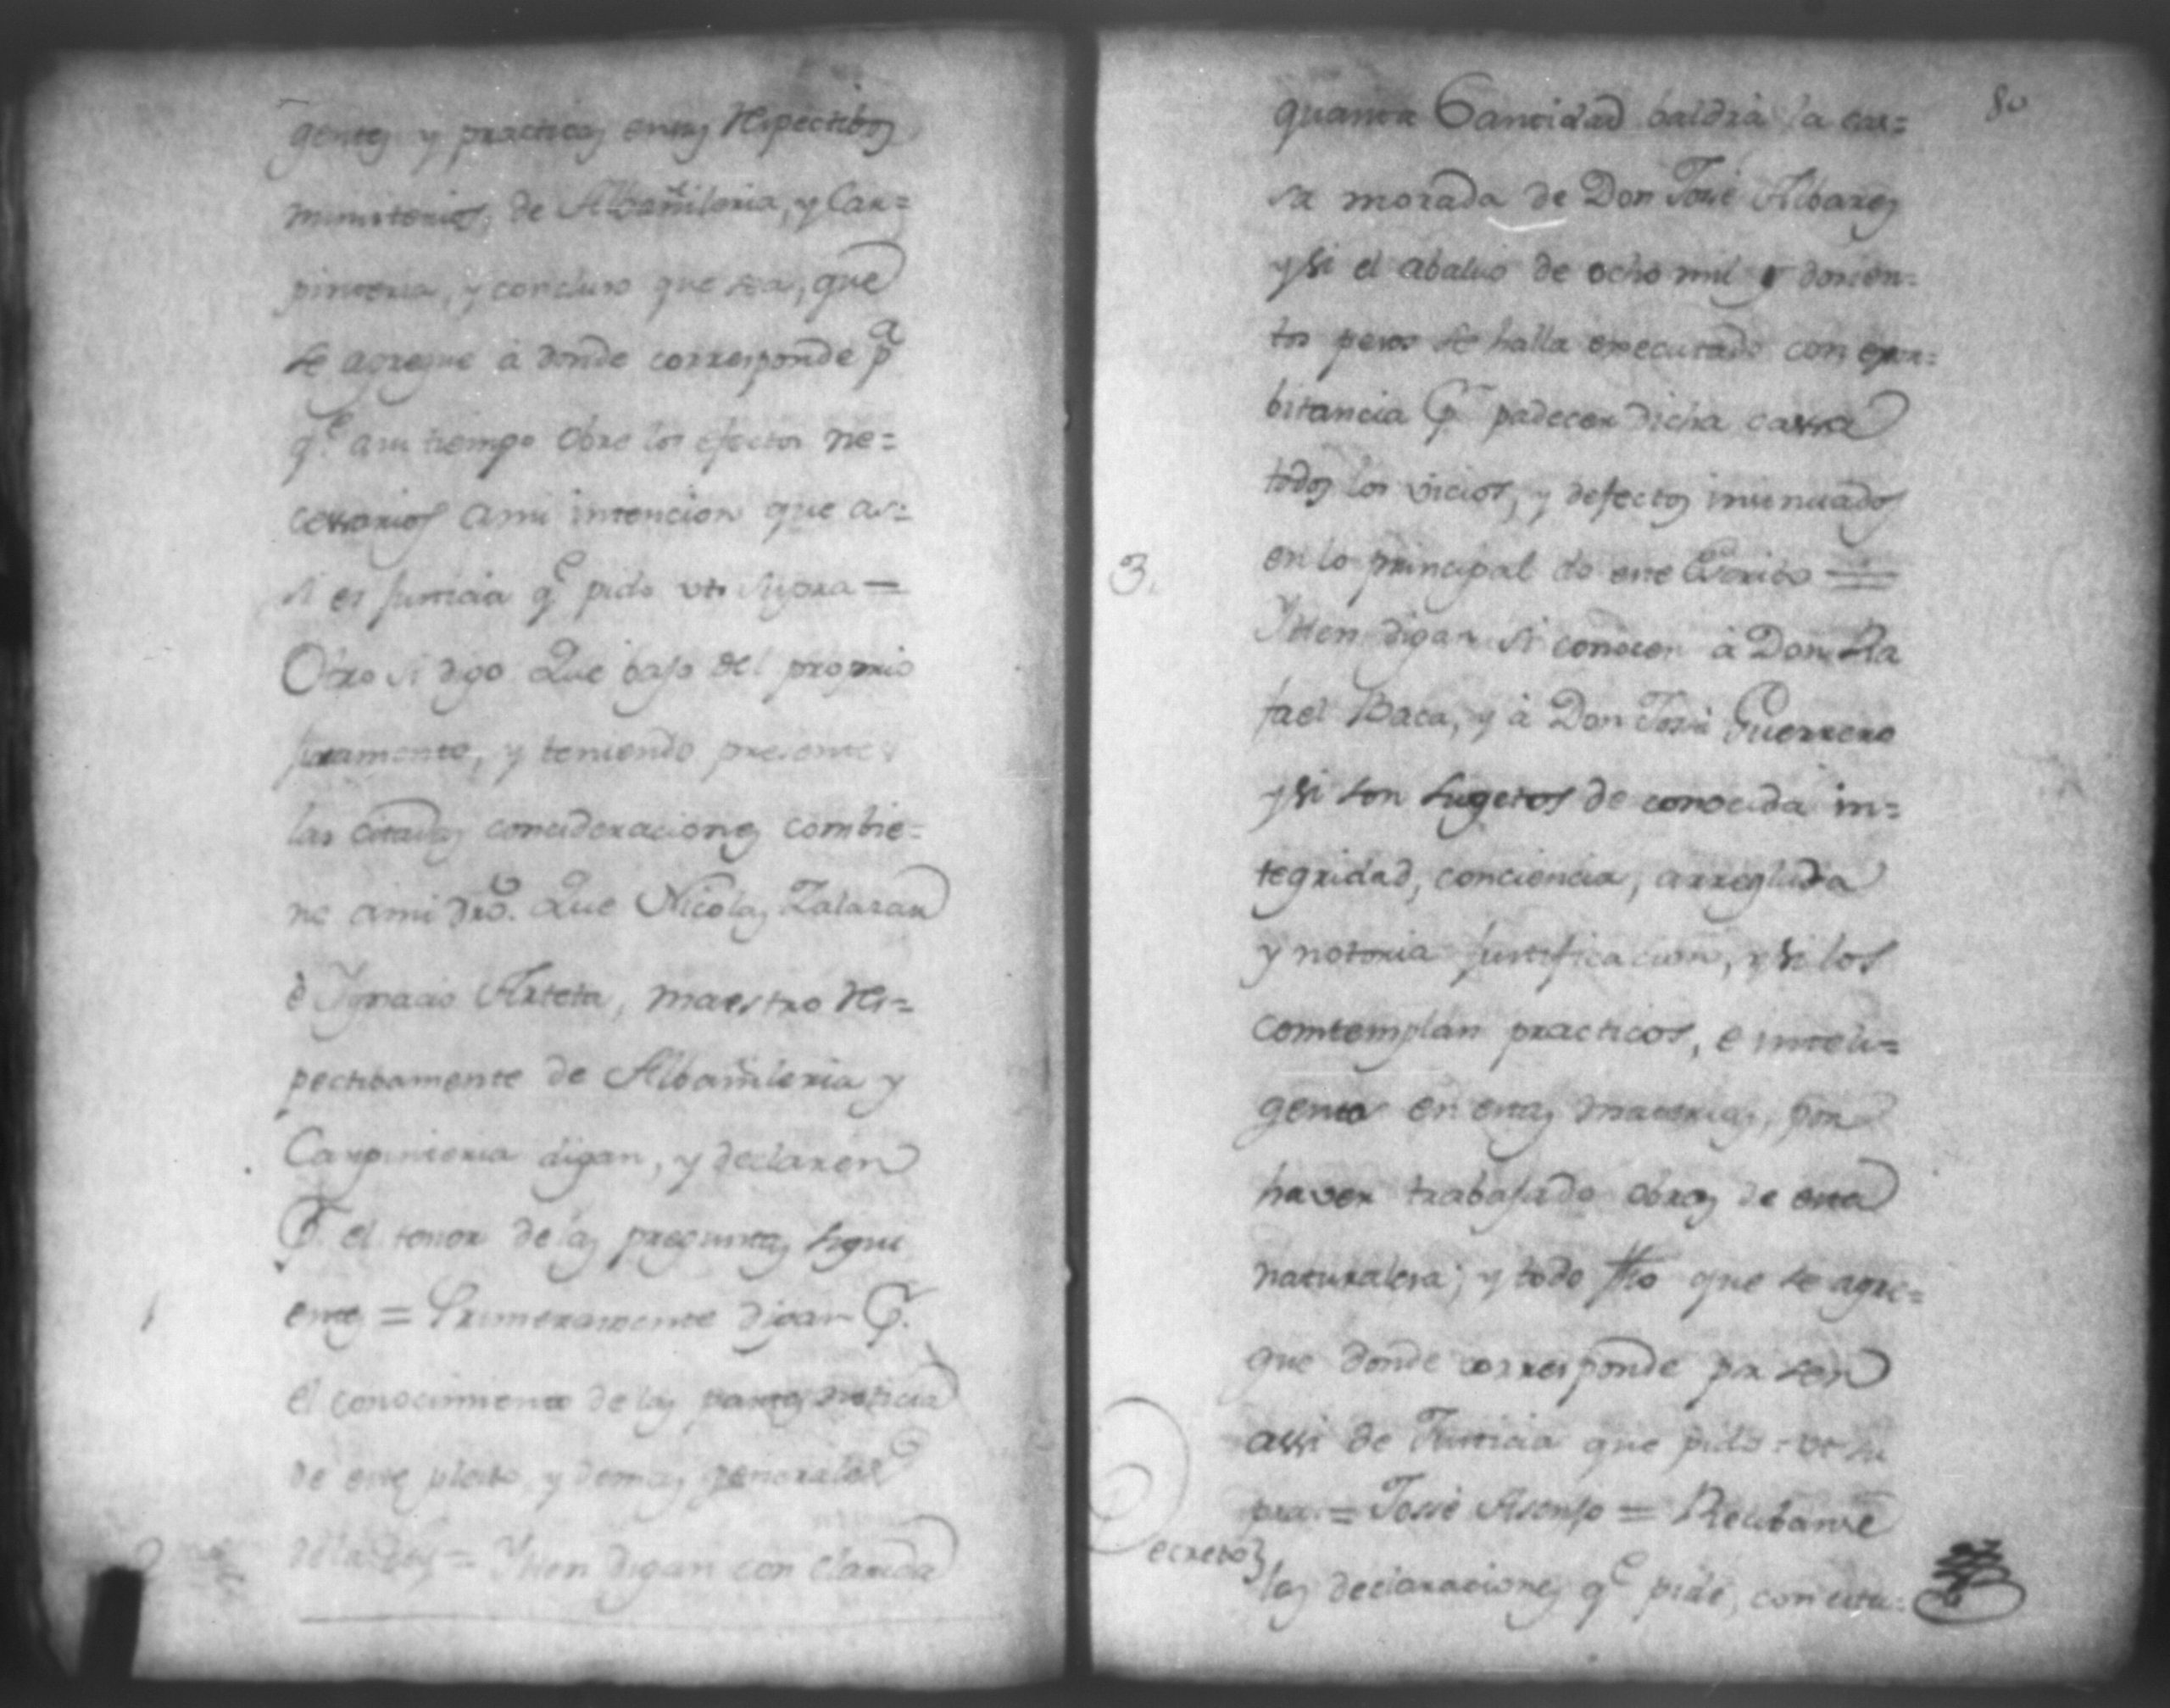 gentes y practicos en sus respectibos
ministerios, de Albañileria, y Car=
pinteria, y concluso que sea, que
se agregue à donde corresponde pª
q.e a su tiempo obre los efectos ne=
cessarios a mi intencion que as=
si es justicia q.e pido ut supra =
Otro si digo Que bajo del proprio
juramento, y teniendo presentes
las citadas consideraciones combie=
ne a mi dro. Que Nicolas Zalazar
è Ygnacio Arteta, maestro res=
pectibamente de Albañileria y
Carpinteria digan, y declaren
P. el tenor de las preguntas sigui
1 entes = Primeramente digan P.
el conocimiento de las partes noticia
de este pleito, y demas generales
2 de la Ley = Ytten digan con clarida
80
quanta Cantidad baldrà la ca=
sa morada de Don José Albares
y si el abaluo de ocho mil y docien=
tos pesos se halla executado con exor=
bitancia P. padecer dicha cassa
todos los vicios, y defectos insinuados
en lo principal de este Escrito =
3. Ytten digan si conocen à Don Ra
fael Baca, y à Don José Guerrero
y si son sugetos de conocida in=
tegridad, conciencia, arreglada
y notoria justificacion, y si los
comtemplan practicos, e inteli=
gentes en estas materias, por
haver trabajado obras de esta
naturalesa; y todo fho que se agre=
gue donde corresponde pr ser
assi de Justicia que pido ut su
pra = José Asensjo = Recibanse
Decreto} las declaraciones q.e pide, con cita=